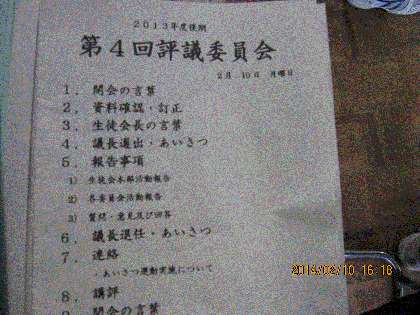 2013年度後期
第4回評議委員会
2月 10日 月曜日
1. 開会の言葉
2. 資料確認・訂正
3. 生徒会長の言葉
4. 議長選出・あいさつ
5. 報告事項
1) 生徒会本部活動報告
2) 各委員会活動報告
3) 質問・意見及び回答
6. 議長退任・あいさつ
7. 連絡
・あいさつ運動実施について
8. 講評
2014/02/10 16:18